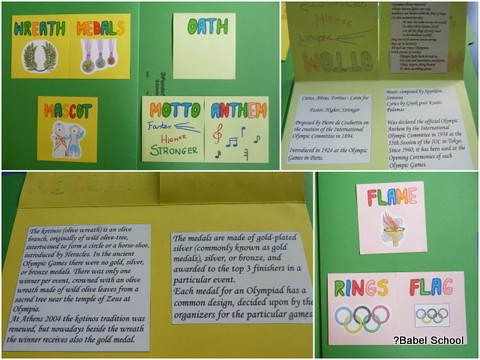 WREATH
MEDALS
MASCOT
OATH
MOTTO
Faster
Higher
STRONGER
ANTHEM
Higher
MOTTO
Citius, Altius, Fortius - Latin for
Faster, Higher, Stronger
Proposed by Pierre de Coubertin on
the creation of the International
Olympic Committee in 1894.
Introduced in 1924 at the Olympic
Games in Paris.
Music composed by Spyridon
Samaras
Lyrics by Greek poet Kostis
Palamas
Was declared the official Olympic
Anthem by the International
Olympic Committee in 1958 at the
55th Session of the IOC in Tokyo.
Since 1960, it has been used at the
Opening Ceremonies of each
Olympic Games.
The kotinos (olive wreath) is an olive
branch, originally of wild olive-tree,
intertwined to form a circle or a horse-shoe,
introduced by Heracles. In the ancient
Olympic Games there were no gold, silver,
or bronze medals. There was only one
winner per event, crowned with an olive
wreath made of wild olive leaves from a
sacred tree near the temple of Zeus at
Olympia.
At Athens 2004 the kotinos tradition was
renewed, but nowadays beside the wreath
the winner receives also the gold medal.
The medals are made of gold-plated
silver (commonly known as gold
medals), silver, or bronze, and
awarded to the top 3 finishers in a
particular event.
Each medal for an Olympiad has a
common design, decided upon by the
organizers for the particular games
FLAME
RINGS
FLAG
?Babel School